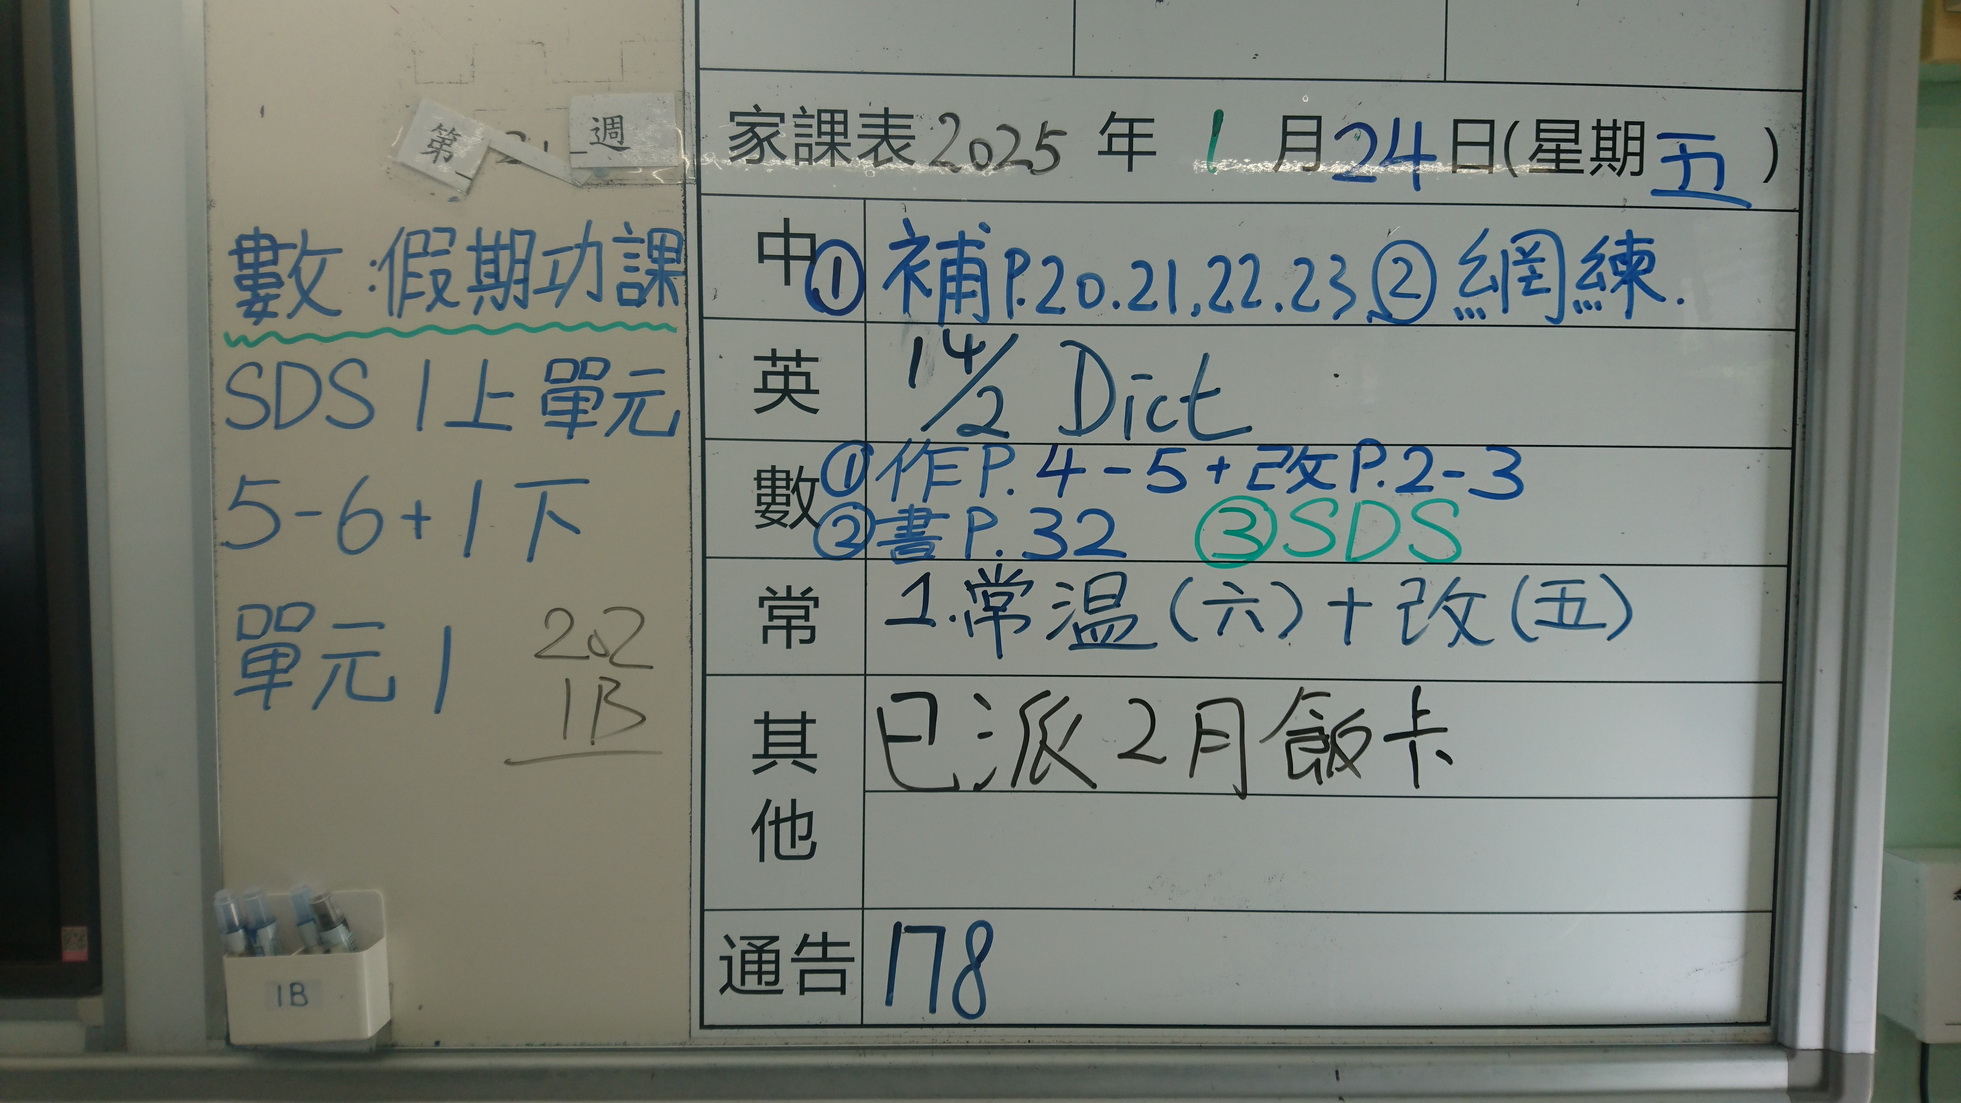 第 週
數:假期功課
SDS 1上單元
5-6+1下
單元1
202
1B
1B
家課表2025年1月24日(星期五)
中 ①補P.20.21,22.23 ②網練.
英 14/2 Dict
數 ①作P.4-5+改P.2-3
②書P.32 ③SDS
常 1.常温(六)+改(五)
其他 已派2月飯卡
通告 178